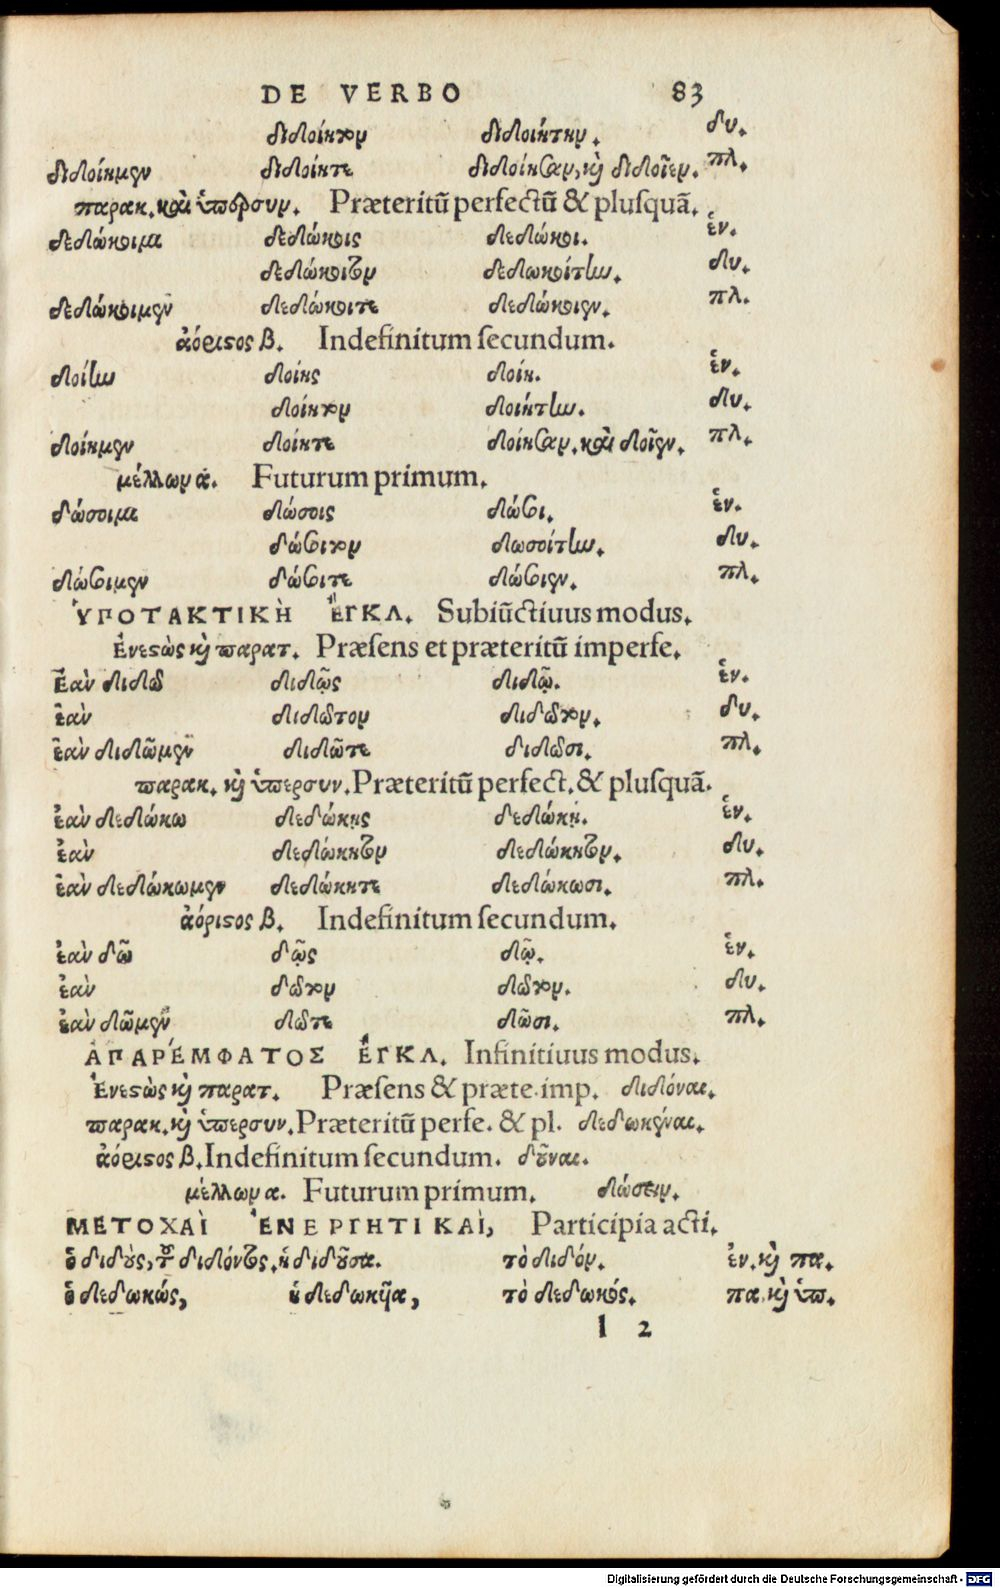 DE VERBO 83
διδοίητον διδοιήτην. δυ.
διδοίημεν διδοίητε διδοίησαν, κỳ διδοῖεν. πλ.
παρακ. καὶ ὑπερσυν. Præteritū perfectū & pluſquā.
δεδώκοιμι δεδώκοις δεδώκοι. ἑν.
δεδώκοιτον δεδωκοίτην. δυ.
δεδώκοιμεν δεδώκοιτε δεδώκοιεν. πλ.
ἀόριστος β. Indefinitum ſecundum.
δοίην δοίης δοίη. ἑν.
δοίητον δοιήτην. δυ.
δοίημεν δοίητε δοίησαν. καὶ δοῖεν. πλ.
μέλλων ά. Futurum primum.
δώσοιμι δώσοις δώσοι. ἑν.
δώσοιτον δωσοίτην. δυ.
δώσοιμεν δώσοιτε δώσοιεν. πλ.
ὙΠΟΤΑΚΤΙΚῊ ἜΓΚΛ. Subiūctiuus modus.
Ἐνεστὼς κỳ παρατ. Præſens et præteritū imperfe.
Ἐὰν διδῶ διδῷς διδῷ. ἑν.
ἐὰν διδῶτον διδῶτον. δυ.
ἐὰν διδῶμεν διδῶτε διδῶσι. πλ.
παρακ. κỳ ὑπερσυν. Præteritū perfect. & pluſquā.
ἐὰν δεδώκω δεδώκῃς δεδώκῃ. ἑν.
ἐὰν δεδώκητον δεδώκητον. δυ.
ἐὰν δεδώκωμεν δεδώκητε δεδώκωσι. πλ.
ἀόριστος β. Indefinitum ſecundum.
ἐὰν δῶ δῷς δῷ. ἑν.
ἐὰν δῶτον δῶτον. δυ.
ἐὰν δῶμεν δῶτε δῶσι. πλ.
ἈΠΑΡΈΜΦΑΤΟΣ ἜΓΚΛ. Infinitiuus modus.
Ἐνεστὼς κỳ παρατ. Præſens & præte. imp. διδόναι.
παρακ. κỳ ὑπερσυν. Præteritū perfe. & pl. δεδωκέναι.
ἀόριστος β. Indefinitum ſecundum. δοῦναι.
μέλλων α. Futurum primum. δώσειν.
ΜΕΤΟΧΑῚ ἘΝΕΡΓΗΤΙΚΑῚ, Participia acti.
ὁ διδοὺς, τοῦ διδόντος. ἡ διδοῦσα. τὸ διδόν. ἑν. κỳ πα.
ὁ δεδωκώς, ἡ δεδωκυῖα, τὸ δεδωκός. πα. κỳ ὑπ.
l 2
Digitalisierung gefördert durch die Deutsche Forschungsgemeinschaft - DFG